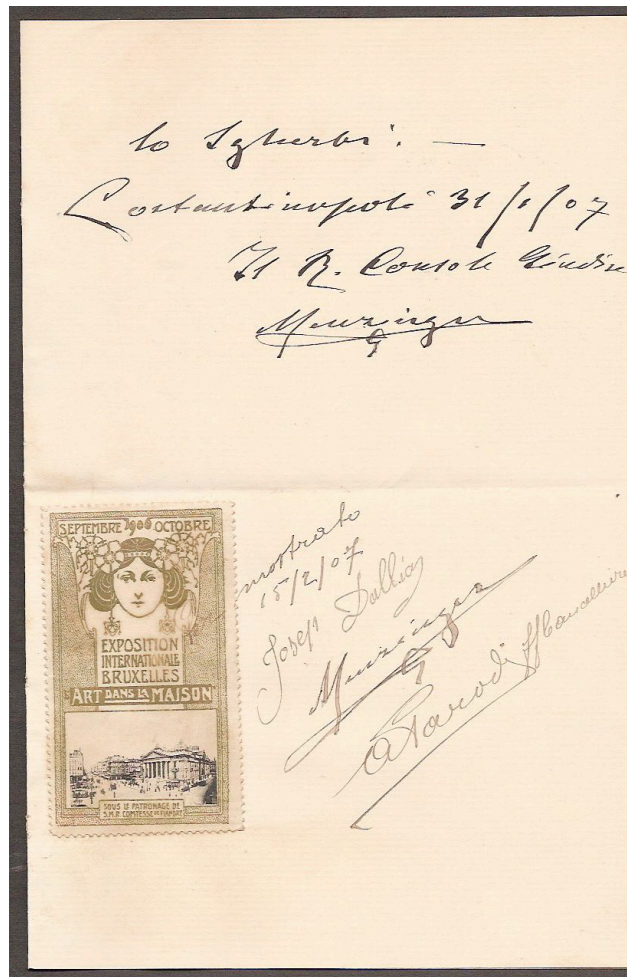 Io Sgherbi. —
Costantinopoli 31/1/07
Il R. Console Giudice
Munzinger
SEPTEMBRE 1906 OCTOBRE
EXPOSITION
INTERNATIONALE
BRUXELLES
L'ART DANS LA MAISON
SOUS LE PATRONAGE DE
S.M.R. COMTESSE DE FLANDRE
mostrato
15/2/07
Josep
Munzinger
Parodi